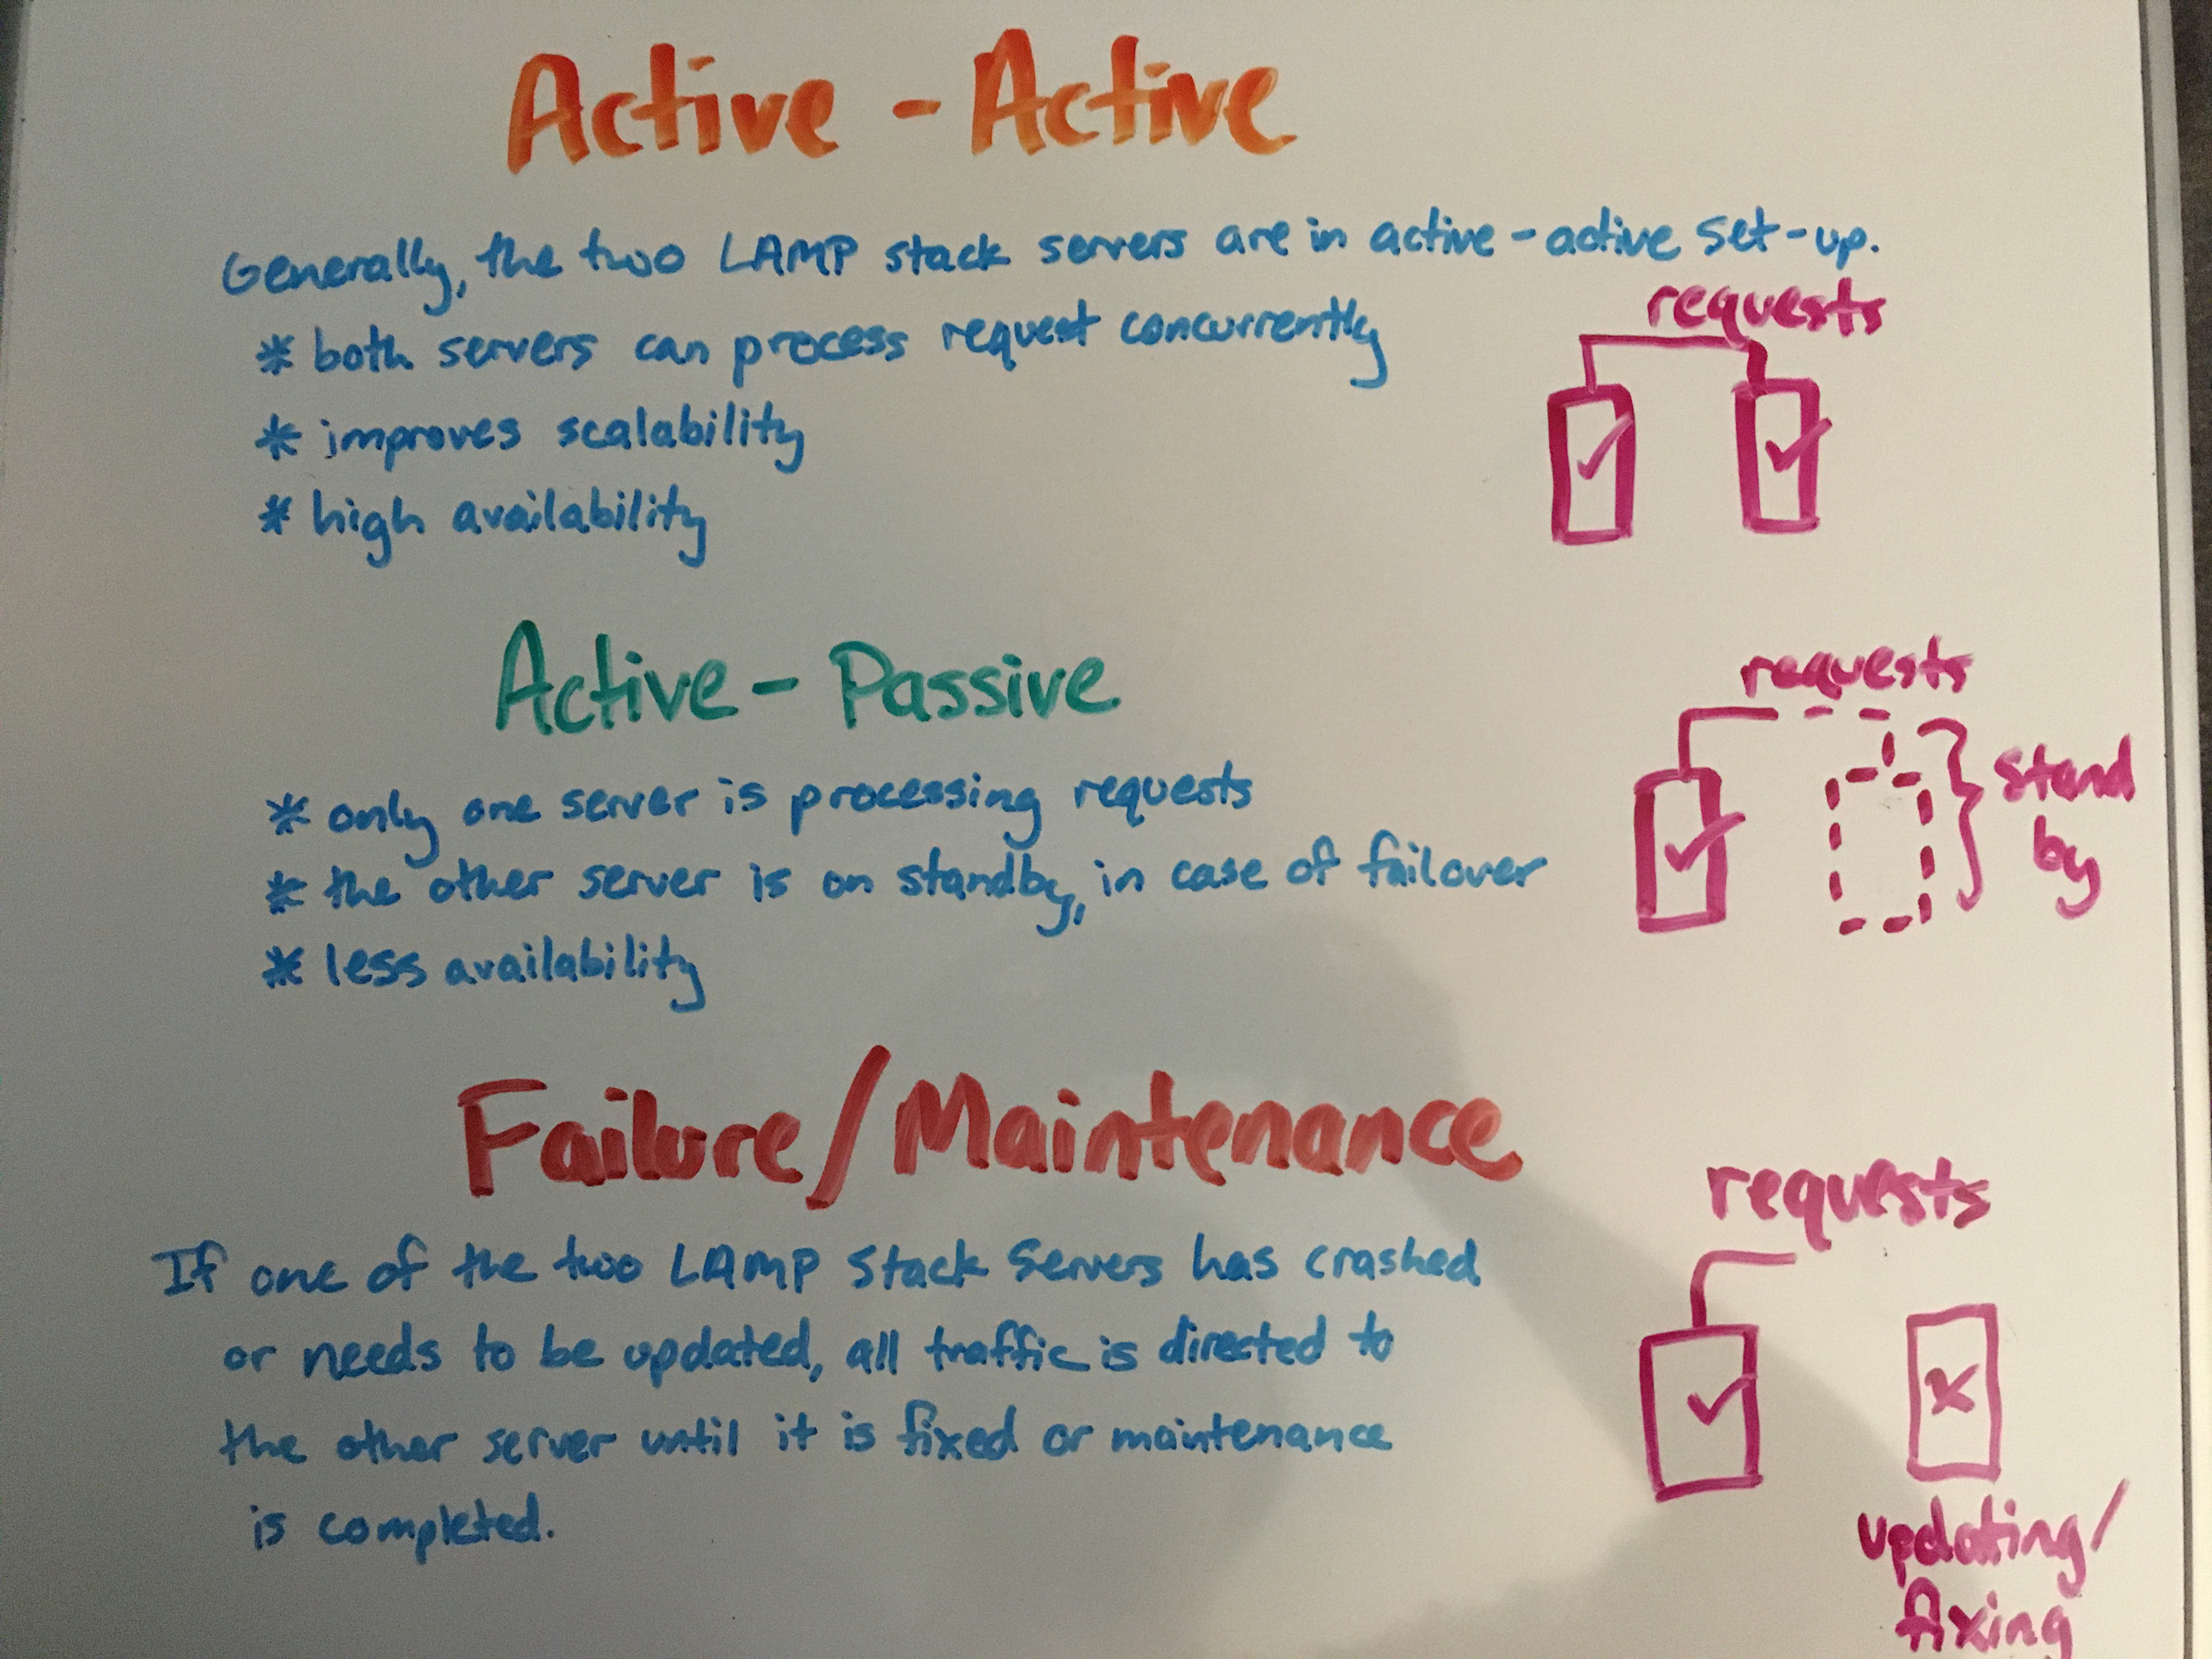 Active - Active
Generally, the two LAMP stack servers are in active-active set-up.
* both servers can process request concurrently
* improves scalability
* high availability
requests
Active - Passive
* only one server is processing requests
* the other server is on standby, in case of failover
* less availability
requests
stand
by
Failure/Maintenance
If one of the two LAMP Stack Servers has crashed
or needs to be updated, all traffic is directed to
the other server until it is fixed or maintenance
is completed.
requests
updating/
fixing